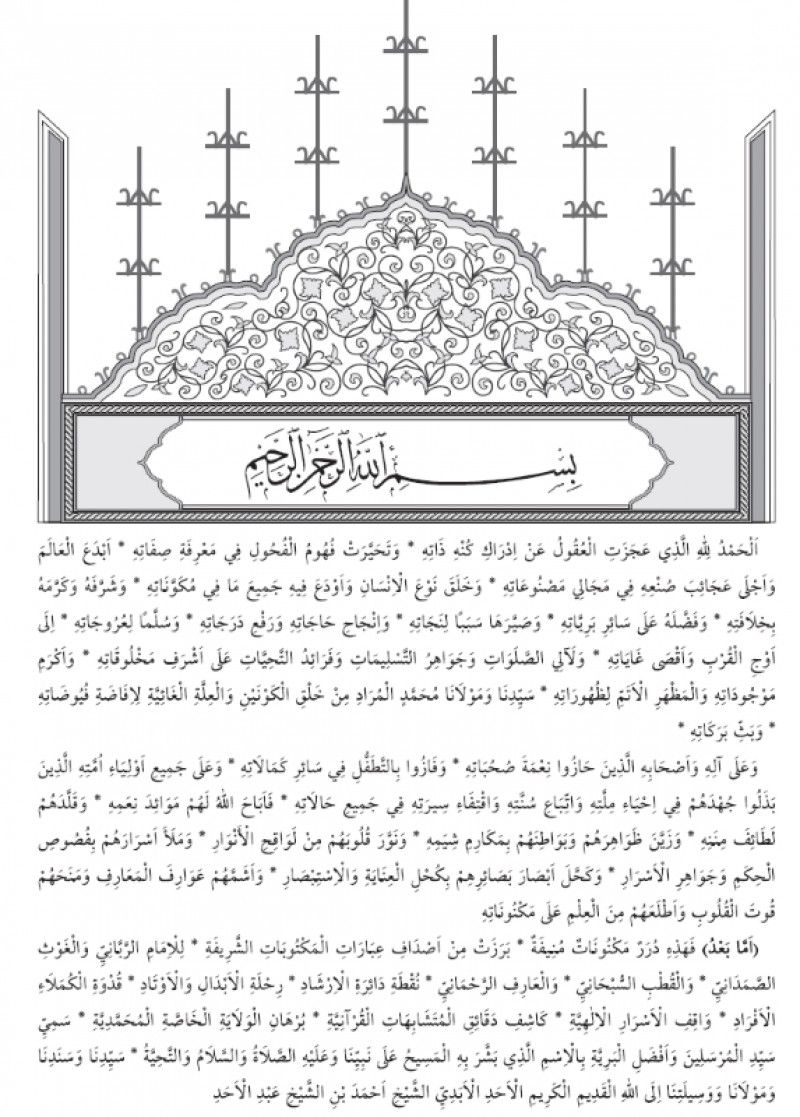 بِسْمِ اللهِ الرَّحْمٰنِ الرَّحِيْمِ
اَلْحَمْدُ لِلّٰهِ الَّذِي عَجَزَتِ الْعُقُولُ عَنْ اِدْرَاكِ كُنْهِ ذَاتِهِ * وَتَحَيَّرَتْ فُهُومُ الْفُحُولِ فِي مَعْرِفَةِ صِفَاتِهِ * اَبْدَعَ الْعَالَمَ
وَاَجْلَى عَجَائِبَ صُنْعِهِ فِي مَجَالِي مَصْنُوعَاتِهِ * وَخَلَقَ نَوْعَ الْاِنْسَانِ وَاَوْدَعَ فِيهِ جَمِيعَ مَا فِي مُكَوَّنَاتِهِ * وَشَرَّفَهُ وَكَرَّمَهُ
بِخِلَافَتِهِ * وَفَضَّلَهُ عَلَى سَائِرِ بَرِيَّاتِهِ * وَصَيَّرَهَا سَبَبًا لِنَجَاتِهِ * وَاِنْجَاحِ حَاجَاتِهِ وَرَفْعِ دَرَجَاتِهِ * وَسُلَّمًا لِعُرُوجَاتِهِ * اِلَى
اَوْجِ الْقُرْبِ وَاَقْصَى غَايَاتِهِ * وَلَآلِي الصَّلَوَاتِ وَجَوَاهِرُ التَّسْلِيمَاتِ وَفَرَائِدُ التَّحِيَّاتِ عَلَى اَشْرَفِ مَخْلُوقَاتِهِ * وَاَكْرَمِ
مَوْجُودَاتِهِ وَالْمَظْهَرِ الْاَتَمِّ لِظُهُورَاتِهِ * سَيِّدِنَا وَمَوْلَانَا مُحَمَّدٍ الْمُرَادِ مِنْ خَلْقِ الْكَوْنَيْنِ وَالْعِلَّةِ الْغَائِيَّةِ لِاِفَاضَةِ فُيُوضَاتِهِ
* وَبَثِّ بَرَكَاتِهِ *
وَعَلَى آلِهِ وَاَصْحَابِهِ الَّذِينَ حَازُوا نِعْمَةَ صُحْبَاتِهِ * وَفَازُوا بِالتَّطَفُّلِ فِي سَائِرِ كَمَالَاتِهِ * وَعَلَى جَمِيعِ اَوْلِيَاءِ اُمَّتِهِ الَّذِينَ
بَذَلُوا جُهْدَهُمْ فِي اِحْيَاءِ مِلَّتِهِ وَاتِّبَاعِ سُنَّتِهِ وَاقْتِفَاءِ سِيرَتِهِ فِي جَمِيعِ حَالَاتِهِ * فَاَبَاحَ اللهُ لَهُمْ مَوَائِدَ نِعَمِهِ * وَقَلَّدَهُمْ
لَطَائِفَ مِنَنِهِ * وَزَيَّنَ ظَوَاهِرَهُمْ وَبَوَاطِنَهُمْ بِمَكَارِمِ شِيَمِهِ * وَنَوَّرَ قُلُوبَهُمْ مِنْ لَوَاقِحِ الْأَنْوَارِ * وَمَلَأَ اَسْرَارَهُمْ بِفُصُوصِ
الْحِكَمِ وَجَوَاهِرِ الْأَسْرَارِ * وَكَحَّلَ اَبْصَارَ بَصَائِرِهِمْ بِكُحْلِ الْعِنَايَةِ وَالْاِسْتِبْصَارِ * وَاَشَمَّهُمْ عَوَارِفَ الْمَعَارِفِ وَمَنَحَهُمْ
قُوتَ الْقُلُوبِ وَاَطْلَعَهُمْ مِنَ الْعِلْمِ عَلَى مَكْنُونَاتِهِ
(اَمَّا بَعْدُ) فَهَذِهِ دُرَرٌ مَكْنُونَاتٌ مُنِيفَةٌ * بَرَزَتْ مِنْ اَصْدَافِ عِبَارَاتِ الْمَكْتُوبَاتِ الشَّرِيفَةِ * لِلْاِمَامِ الرَّبَّانِيِّ وَالْغَوْثِ
الصَّمَدَانِيِّ * وَالْقُطْبِ السُّبْحَانِيِّ * وَالْعَارِفِ الرَّحْمَانِيِّ * نُقْطَةِ دَائِرَةِ الْاِرْشَادِ * رِحْلَةِ الْأَبْدَالِ وَالْأَوْتَادِ * قُدْوَةِ الْكُمَلَاءِ
الْأَفْرَادِ * وَاقِفِ الْأَسْرَارِ الْاِلٰهِيَّةِ * كَاشِفِ دَقَائِقِ الْمُتَشَابِهَاتِ الْقُرْآنِيَّةِ * بُرْهَانِ الْوَلَايَةِ الْخَاصَّةِ الْمُحَمَّدِيَّةِ * سَمِيِّ
سَيِّدِ الْمُرْسَلِينَ وَاَفْضَلِ الْبَرِيَّةِ بِالْاِسْمِ الَّذِي بَشَّرَ بِهِ الْمَسِيحُ عَلَى نَبِيِّنَا وَعَلَيْهِ الصَّلَاةُ وَالسَّلَامُ وَالتَّحِيَّةُ * سَيِّدِنَا وَسَنَدِنَا
وَمَوْلَانَا وَوَسِيلَتِنَا اِلَى اللهِ الْقَدِيمِ الْكَرِيمِ الْاَحَدِ الْاَبَدِيِّ الشَّيْخِ اَحْمَدَ بْنِ الشَّيْخِ عَبْدِ الْاَحَدِ